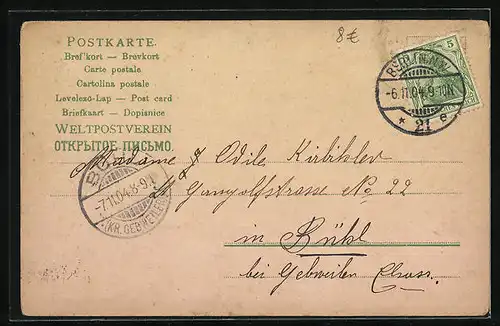 8€
POSTKARTE.
Bref'kort — Brevkort
Carte postale
Cartolina postale
Levelező-Lap — Post card
Briefkaart — Dopisnice
WELTPOSTVEREIN
ОТКРЫТОЕ ПИСЬМО.
5
-6.11.04.9-10N.
* 21 e
Madame Odile Kirbihler
Gangolfstrasse No 22
in Bühl
bei Gebweiler Elsass.
B
-7.11.04.8-9
(KR. GEBWEILER)